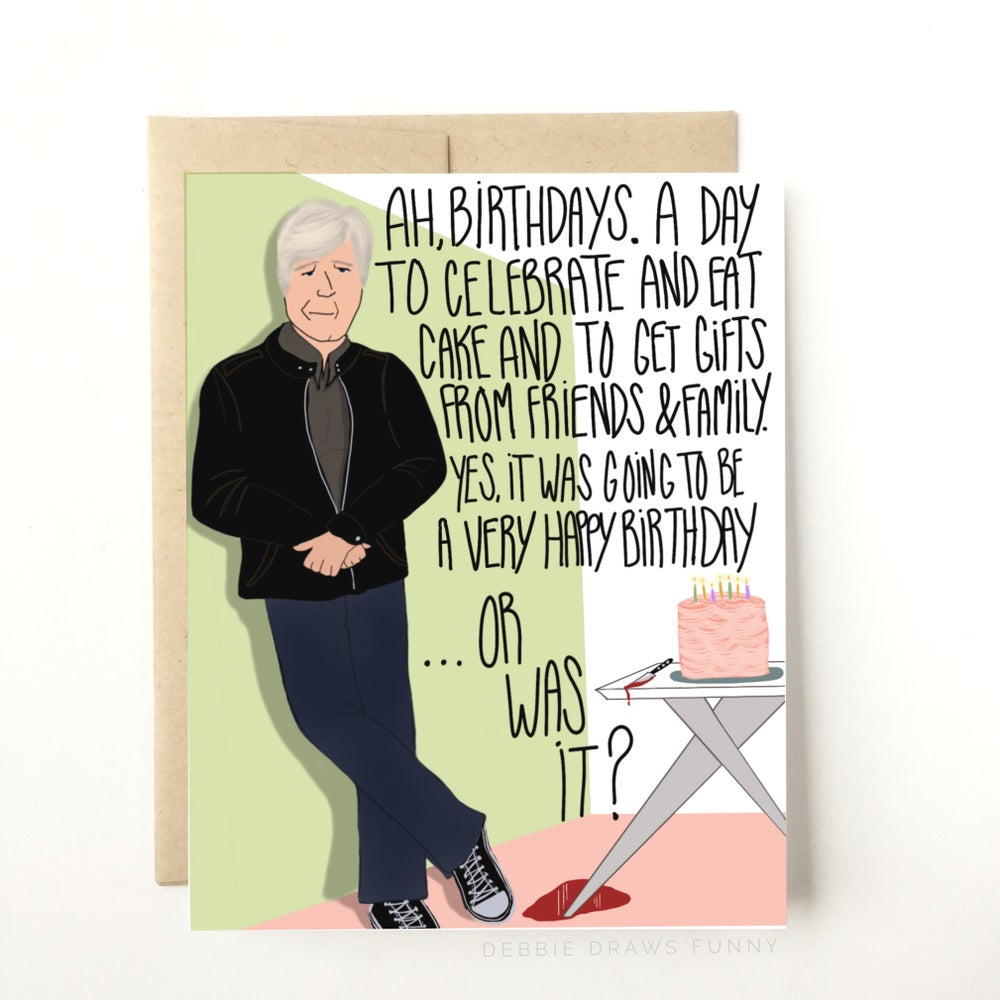 AH, BIRTHDAYS. A DAY
TO CELEBRATE AND EAT
CAKE AND TO GET GIFTS
FROM FRIENDS & FAMILY.
YES, IT WAS GOING TO BE
A VERY HAPPY BIRTHDAY
... OR
WAS
IT?
DEBBIE DRAWS FUNNY